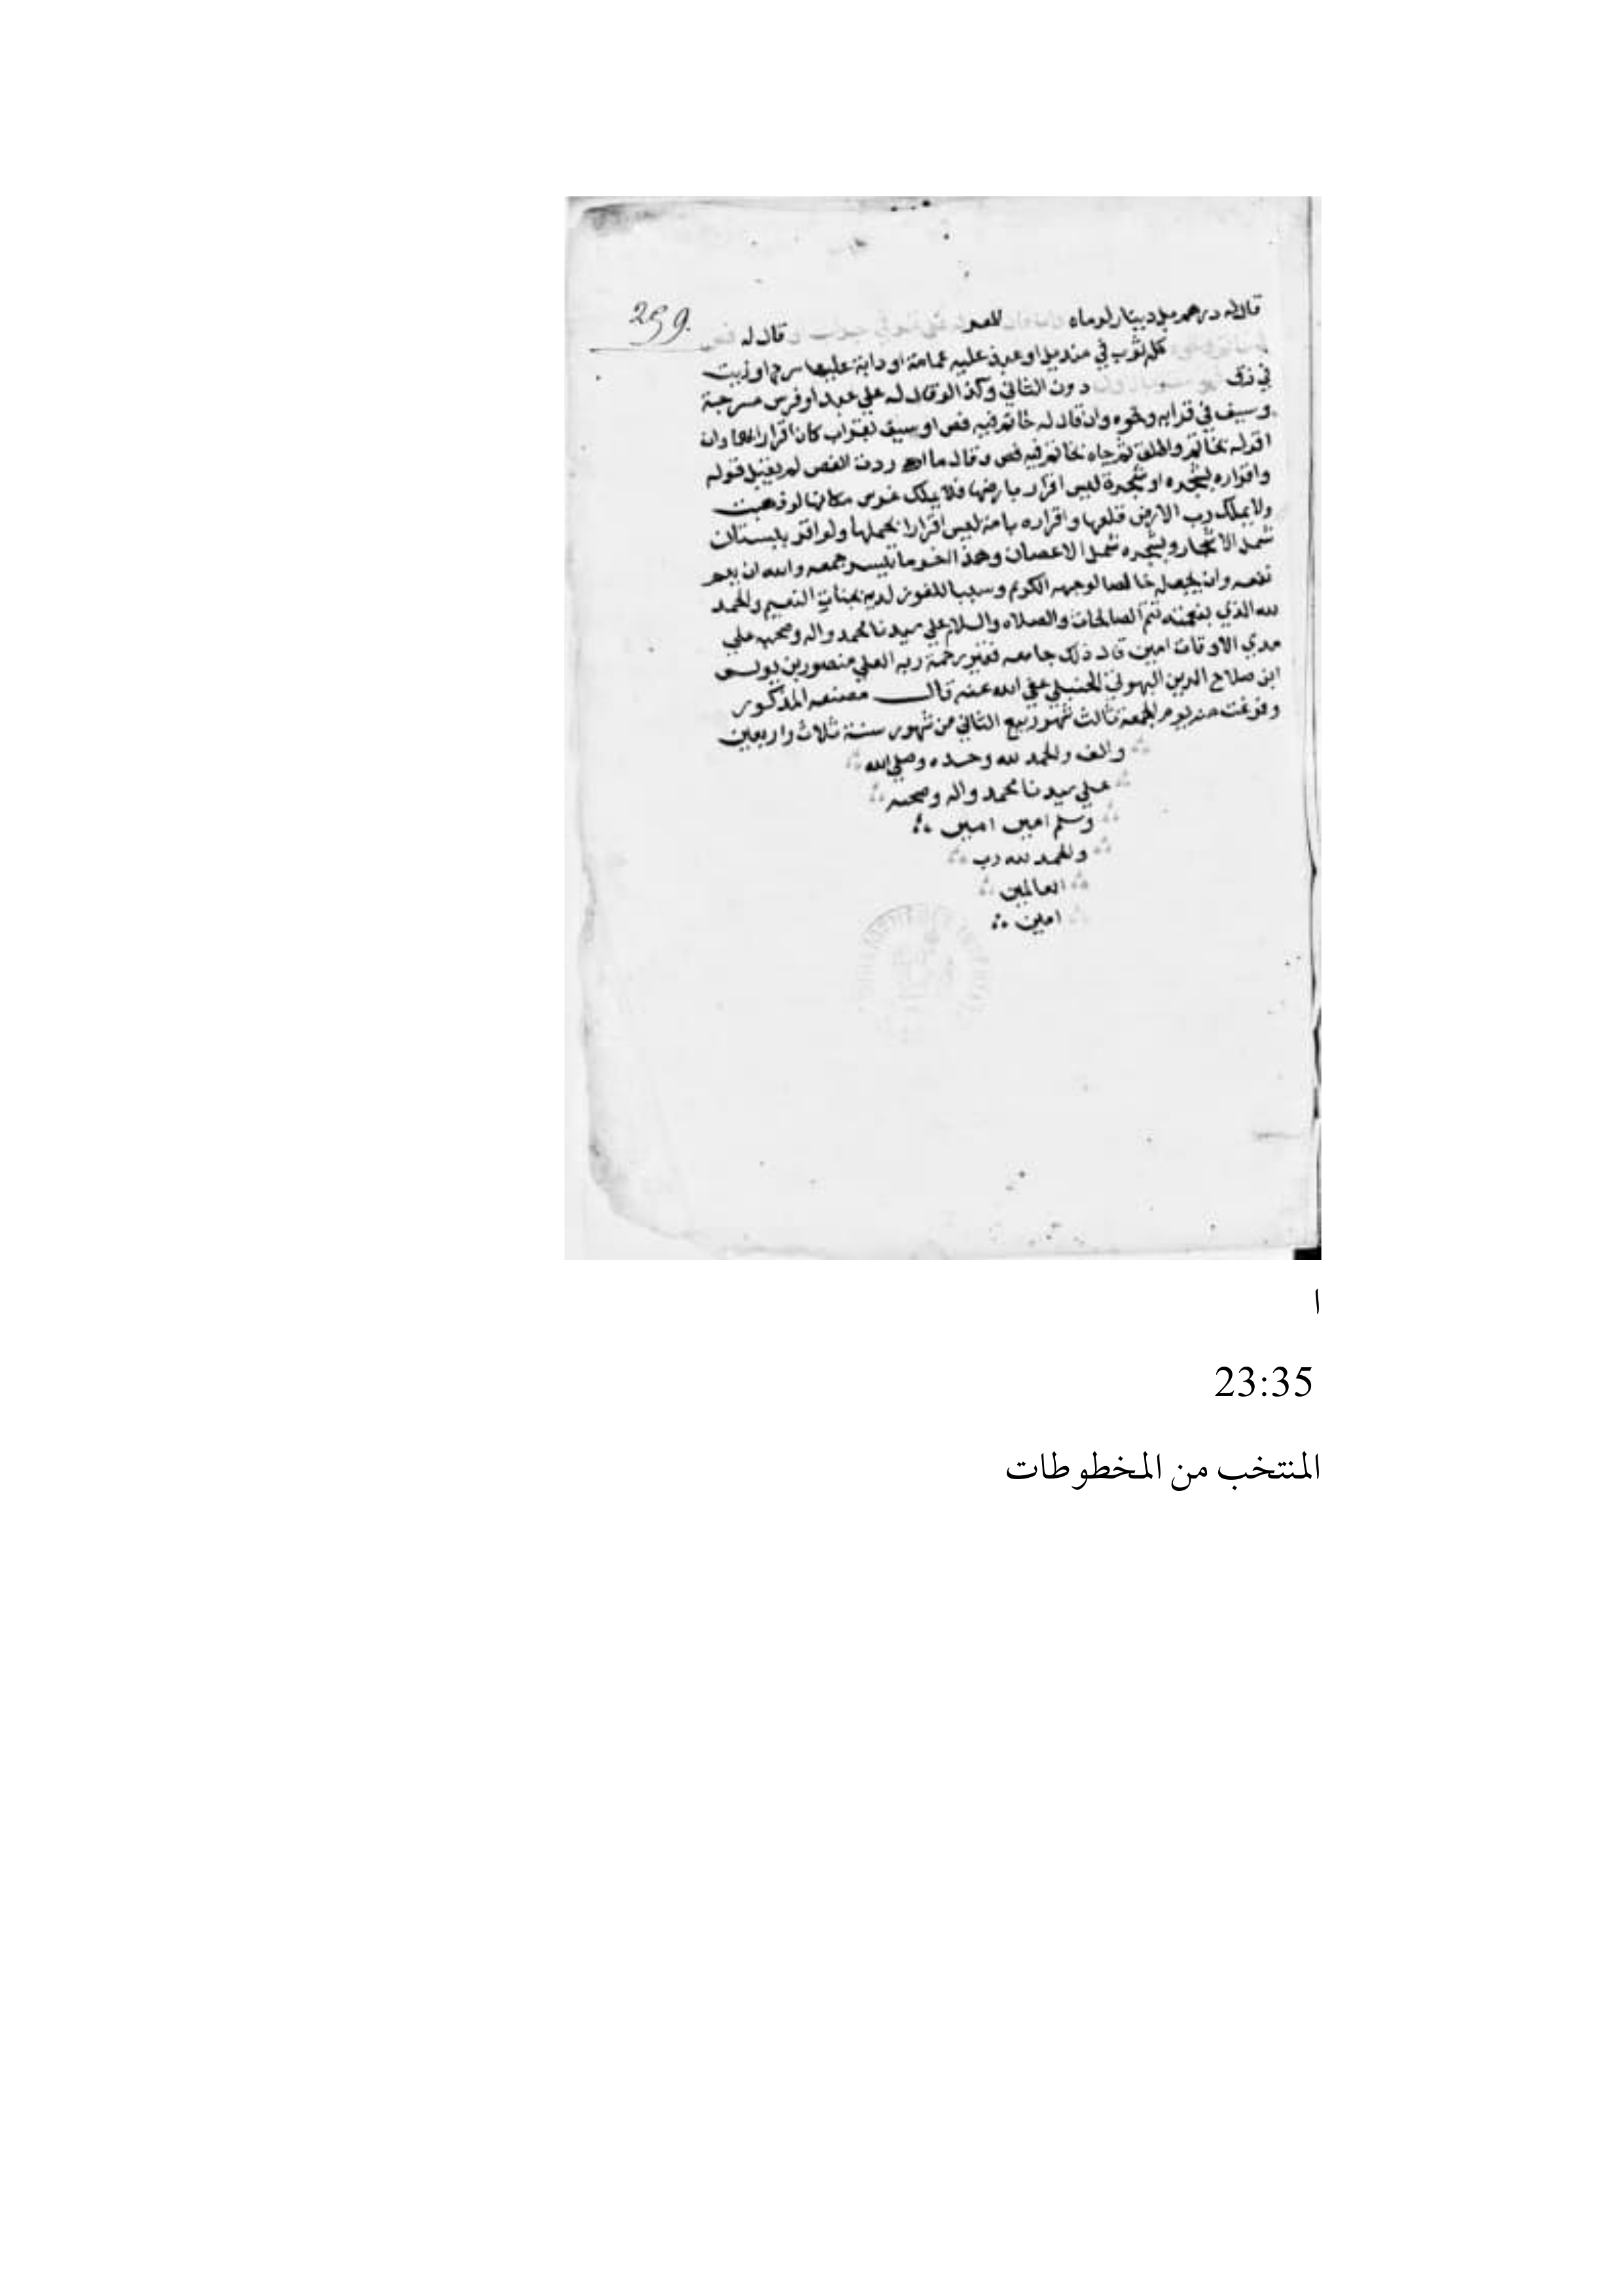 299
قال له درهم بل دينار لزماه
قال له
كل ثوب في منديل او عبد عليه عمامة او دابة عليها سرج او زيت
في زق دون الثاني وكذا لو قال له علي عبد او فرس مسرجة
وسيف في قرابه ونحوه وان قال له خاتم فيه فص او سيف بقراب كان اقرارا بهما وان
اقر له بخاتم واطلق ثم جاه بخاتم فيه فص وقال ما اردت الفص لم يقبل قوله
واقراره بشجره او شجرة ليس اقرار بارضها فلا يملك غرس مكانها لو ذهبت
ولا يملك رب الارض قلعها واقراره بامة ليس اقرارا بحملها ولو اقر ببستان
شمل الاشجار وبشجره شمل الاغصان وهذا اخر ما تيسر جمعه والله ان يعم
نفعه وان يجعله خالصا لوجهه الكريم وسببا للفوز لديه بجنات النعيم والحمد
لله الذي بنعمته تتم الصالحات والصلاه والسلام علي سيدنا محمد واله وصحبه علي
مدي الاوقات امين قال ذلك جامعه فقير رحمة ربه العلي منصور بن يونس
ابن صلاح الدين البهوتي الحنبلي عفي الله عنه قال مصنفه المذكور
وفرغت منه يوم الجمعة ثالث شهر ربيع الثاني من شهور سنة ثلاث واربعين
والف والحمد لله وحده وصلي الله
علي سيدنا محمد واله وصحبه
وسلم امين امين
والحمد لله رب
العالمين
امين
ا
23:35
المنتخب من المخطوطات